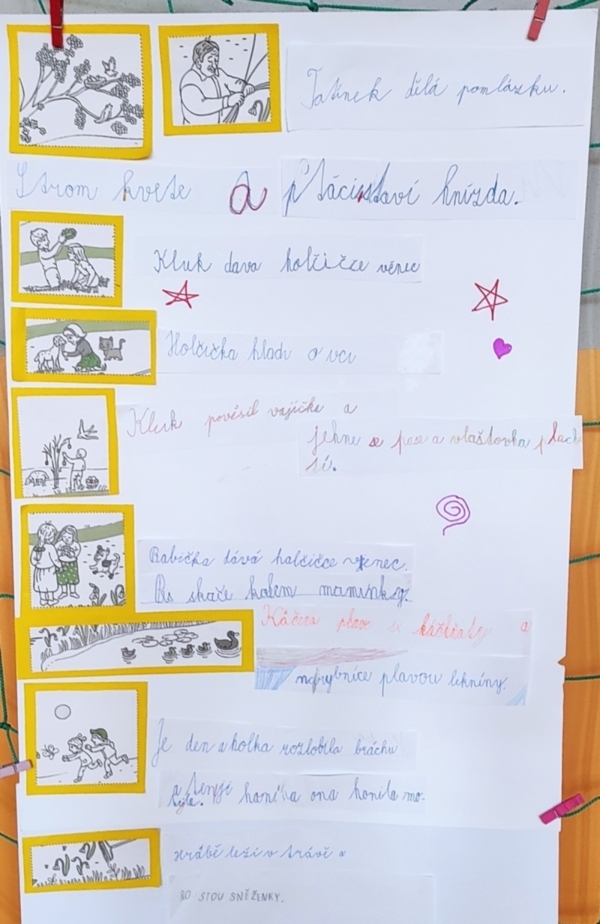 Tatínek dělá pomlázku.
Strom kvete a ptáci staví hnízda.
Kluk dava holčičce věnec
Holčička hladi ovci
Kluk pověsil vajíčke a
jehne se pase a vlaštovka plach
tí.
Babička dává halčičce vjenec.
Pes skače kolem maminky.
Kačena plave s káčňaty a
na rybnice plavou lekníny.
Je den a holka rozlobila bráchu
a tenji honí a ona honila mo-
týla.
Hrábě leži v trávě a
RO STOU SNĚŽENKY.